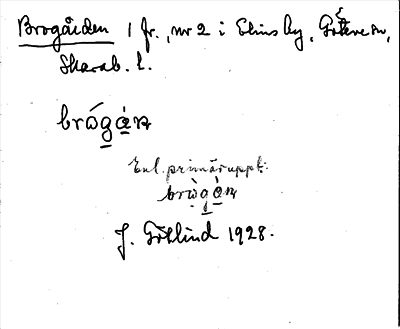 Brogården 1 fr., nr 2 i Elins by, Götene sn,
Skarab. l.
brώgȧn
Enl. primäruppt:
brω̇gȧn
J. Götlind 1928.